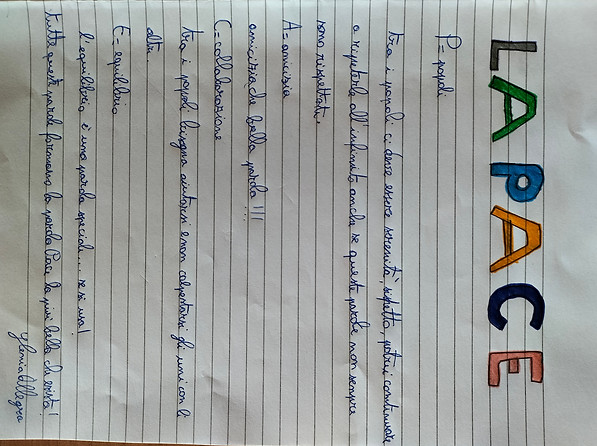 LA PACE
P= popoli
tra i popoli ci deve essere serenità, rispetto, potrei continuare
a ripeterlo all'infinito anche se queste parole non sempre
sono rispettate.
A= amicizia
amicizia che bella parola!!!
C= collaborazione
tra i popoli bisogna aiutarsi e non calpestarsi gli uni con li
altri.
E= equilibrio
l'equilibrio è una parola special... se si usa!
tutte queste parole formano la parola Pace la più bella che esista!
Ylenia Allegra